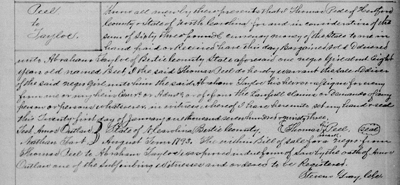 Peel
to
Taylor
Know all men by these presents that I Thomas Peele of Hertford
County & State of North Carolina for and in consideration of the
sum of Sixty three pounds currency money of the State to me in
hand paid or Received have this day Bargained sold & delivered
unto Abraham Taylor of Bertie County State aforesaid one negro Girl about Eight
years old named Bett & I the said Thomas Peel do hereby warrant the Sale
of the said negro Girl unto him the said Abraham Taylor his heirs or assigns forever from
me or my heirs Executors or Adms. or from the lawful claims or demands of any
person or persons whatsoever in witness whereof I have hereunto set my hand & seal
This Twenty first day of January one thousand seven hundred ninety three
Test Amos Outlaw State of No Carolina Bertie County Thomas Peel seal
Nathan August Term 1793. The within Bill of sale for a negro from
Thomas Peel to Abraham Taylor was proved in due form of Law by the oath of Amos
Outlaw one of the Subscribing witnesses and ordered to be Registered.
Stevens Gray Clk